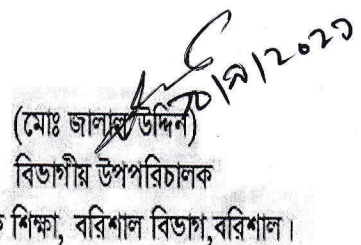 (মোঃ জালাল উদ্দিন)
বিভাগীয় উপপরিচালক
শিক্ষা, বরিশাল বিভাগ,বরিশাল।